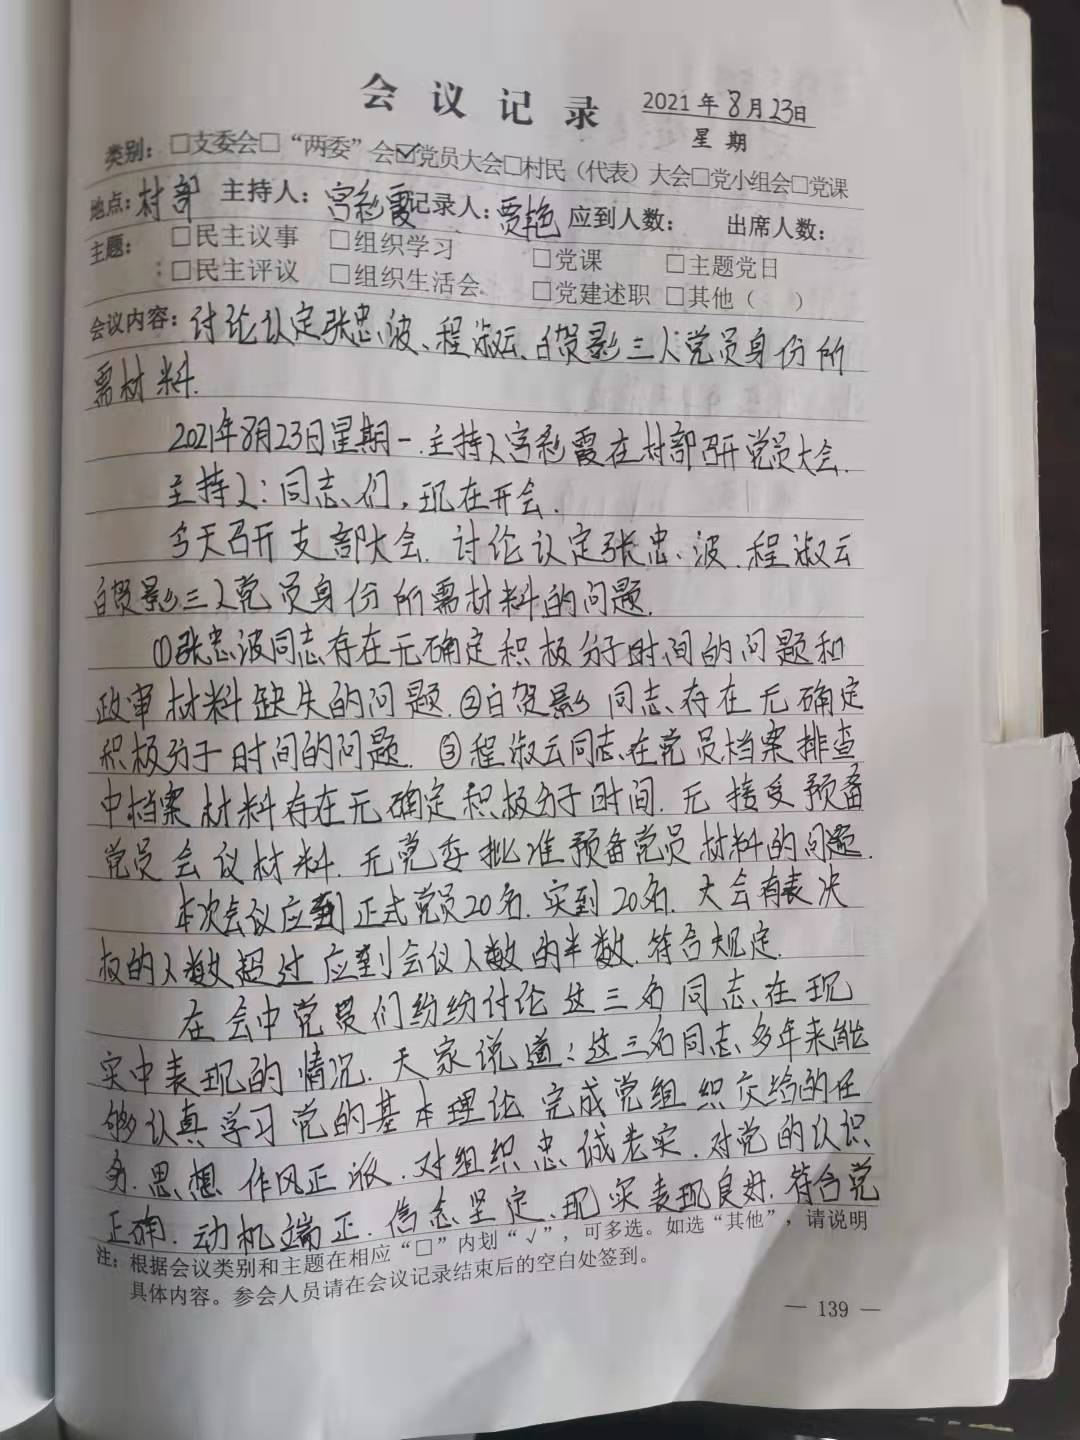 会议记录 2021年8月23日
星期
类别：□支委会□“两委”会☑党员大会□村民（代表）大会□党小组会□党课
地点：村部 主持人：宫彩霞 记录人：贾艳 应到人数： 出席人数：
主题： □民主议事 □组织学习 □党课 □主题党日
□民主评议 □组织生活会 □党建述职 □其他（ ）
会议内容：讨论认定张忠波、程淑云、白贺影三人党员身份所
需材料.
2021年8月23日星期一.主持人宫彩霞在村部召开党员大会.
主持人：同志们，现在开会.
今天召开支部大会.讨论认定张忠波.程淑云
白贺影三人党员身份所需材料的问题.
①张忠波同志存在无确定积极分子时间的问题和
政审材料缺失的问题.②白贺影同志存在无确定
积极分子时间的问题.③程淑云同志在党员档案排查
中档案材料存在无确定积极分子时间.无接受预备
党员会议材料.无党委批准预备党员材料的问题.
本次会议应到正式党员20名.实到20名.大会有表决
权的人数超过应到会议人数的半数.符合规定.
在会中党员们纷纷讨论这三名同志在现
实中表现的情况.大家说道：这三名同志多年来能
够认真学习党的基本理论完成党组织交给的任
务.思想作风正派.对组织忠诚老实.对党的认识
正确.动机端正.信念坚定、现实表现良好.符合党
注：根据会议类别和主题在相应“□”内划“√”，可多选。如选“其他”，请说明
具体内容。参会人员请在会议记录结束后的空白处签到。
— 139 —